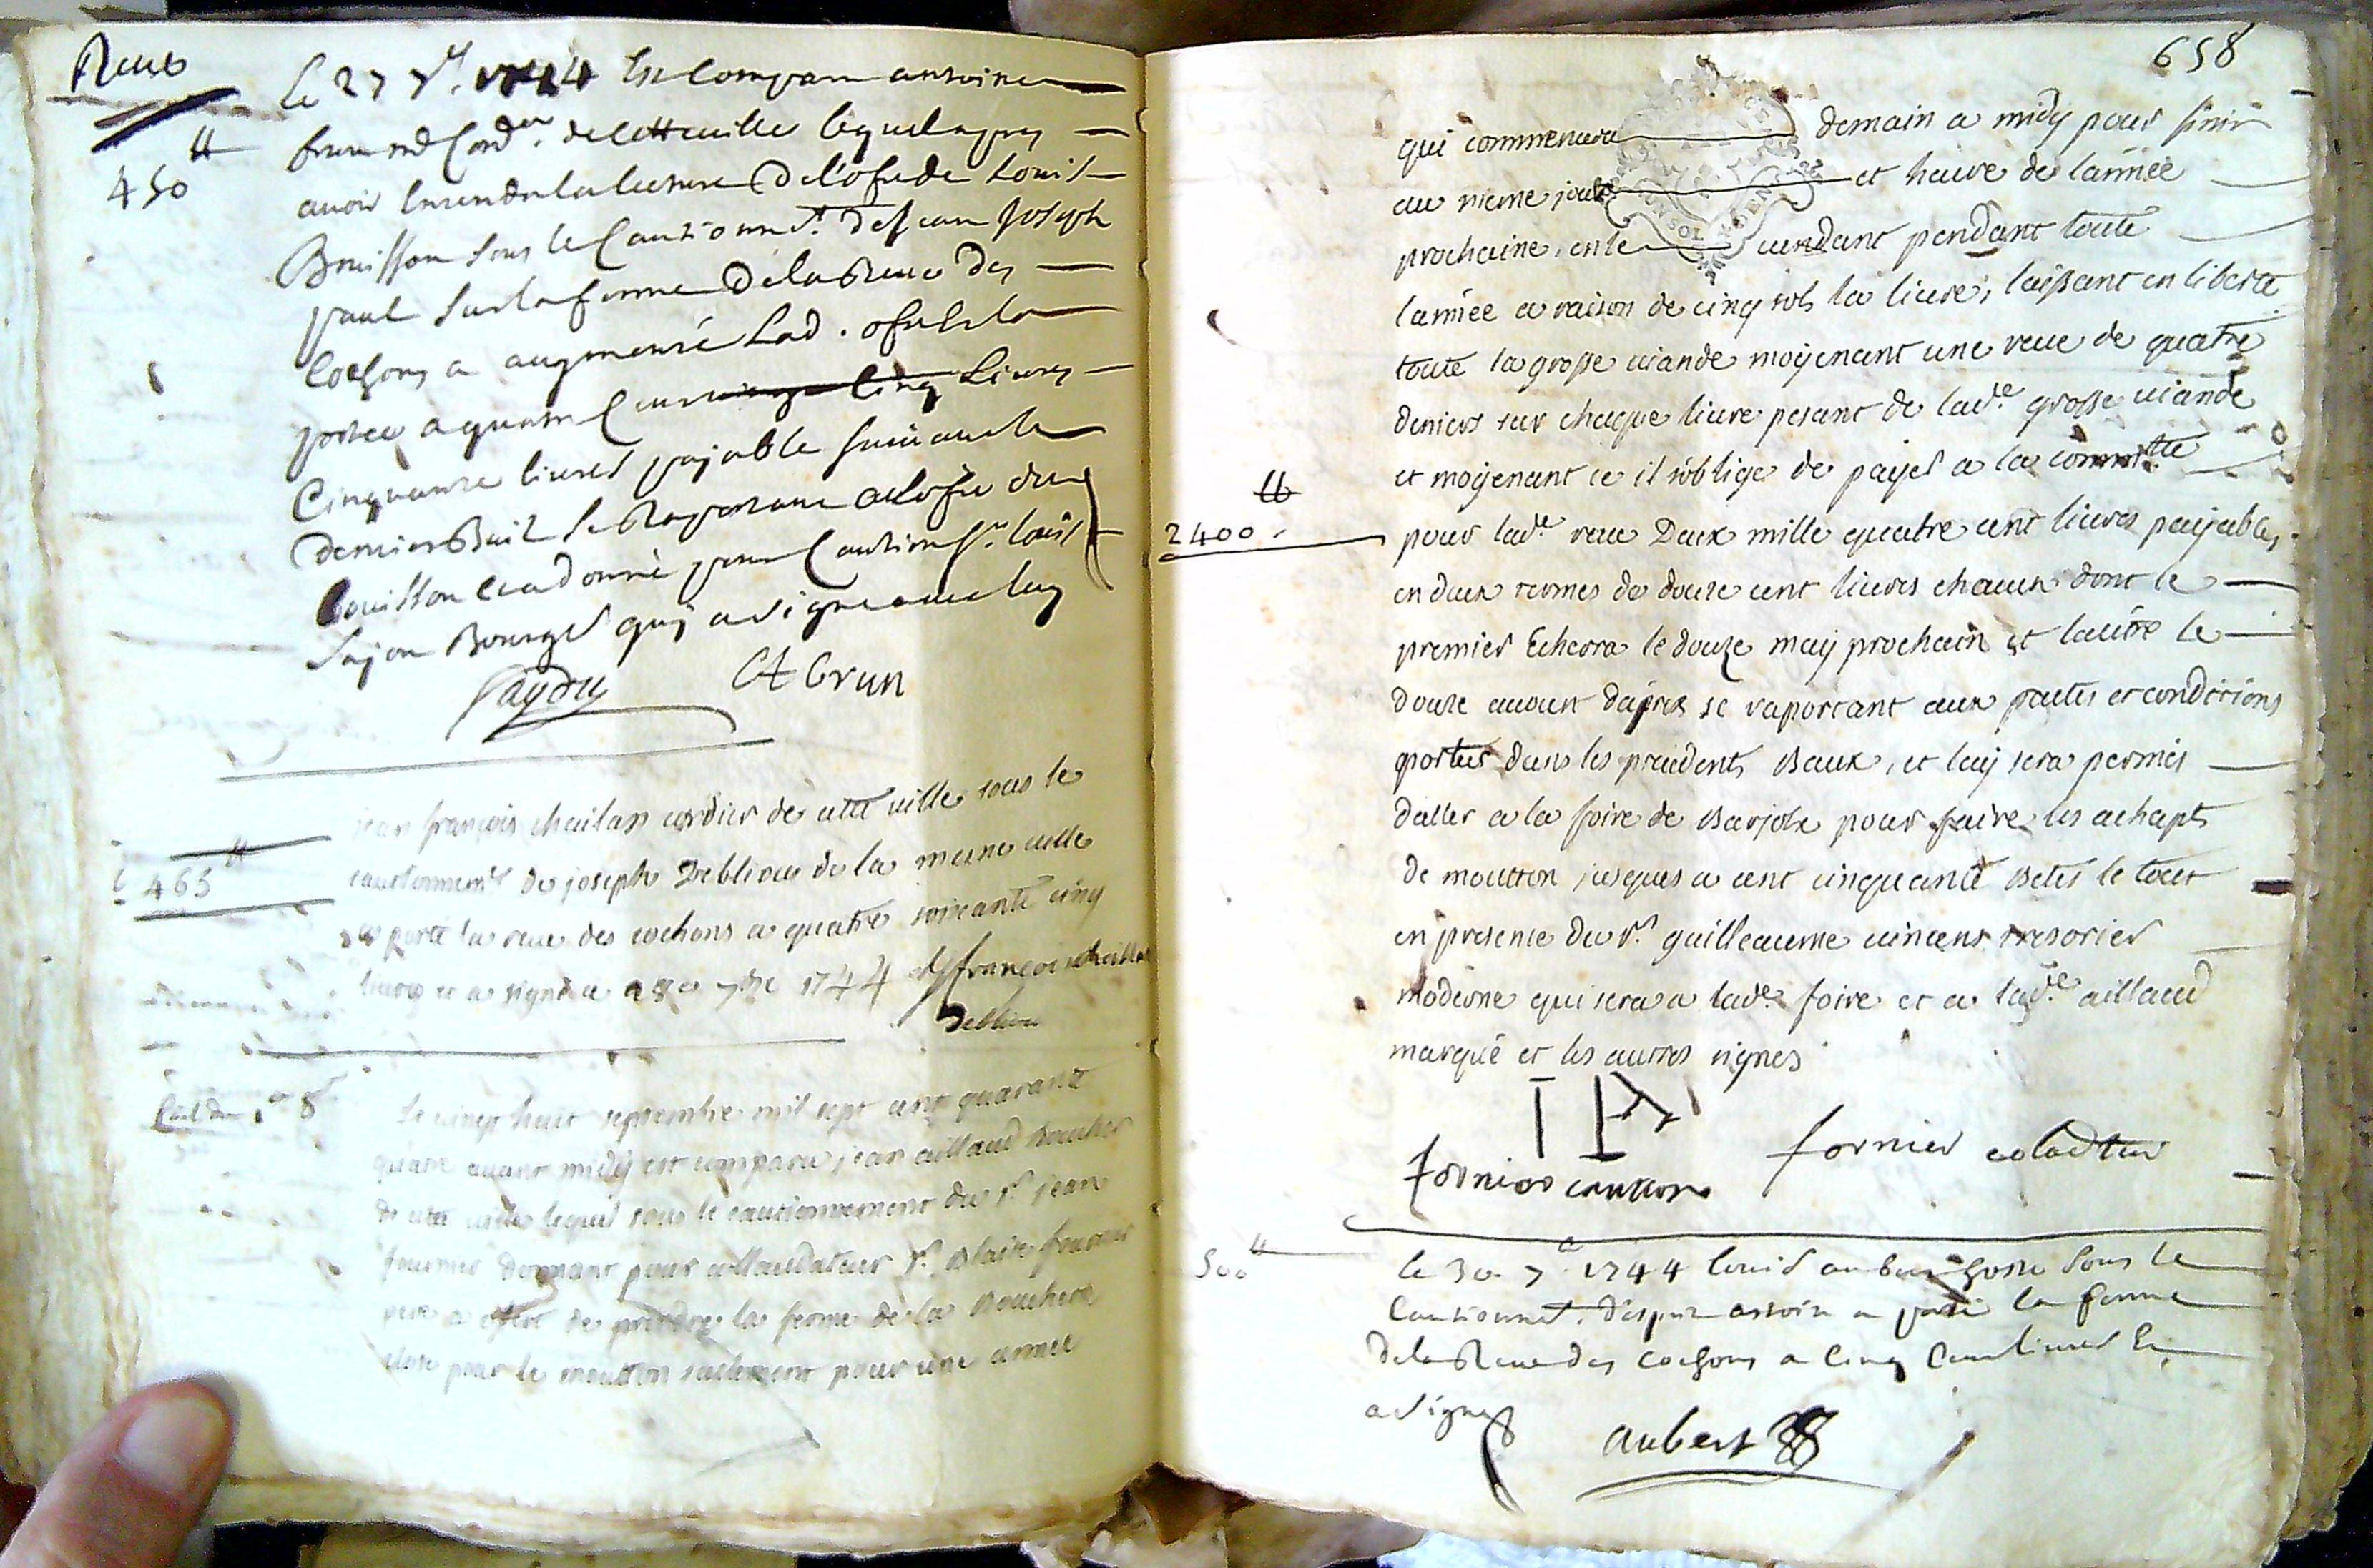 Reue
450 ₶
Le 27 7.bre 1744 Est Comparu antoine
brun md Cord.er de cette ville lequel apres
avoir Entendu la lecture de l'ofre de Louis
Bouisson sous le Cautionnet. de Jean Joseph
paul sur la ferme de la Reue des
Cochons a augmenté lad. ofre et la
portée a quatre Cent vingt cinq Livres
Cinquante livres payable suivant le
dernier Bail se Raportant a l'ofre dud
bouisson et a donné pour Caution Sr. louis
bourgs quy a signe avec luy
CA brun
465 ₶
jean françois chailan cordier de cette ville sous le
cautionnemt de joseph Deblieu de la mesme ville
a porté la reue des cochons a quatre soixante cinq
livres et a signé a 28e 7bre 1744
Deblieu
le vingt huit septembre mil sept cent quarante
quatre avant midy est comparu jean aillaud boucher
de cette ville lequel sous le cautionnement du sr. jean
fournier donnant pour collaudateur sr. Blaise fournier
pere a offert de prendre la ferme de la Boucherie
close pour le moutton seulement pour une année
658
qui commencera demain a midy pour finir
au meme jour et heure de l'année
prochaine, en le vendant pendant toute
l'année a raison de cinq sols la livre, laissant en liberté
toute la grosse viande moyenant une reue de quatre
deniers sur chaque livre pesant de lad.e grosse viande
et moyenant ce il s'oblige de payer a la comm.tté
2400 ₶
pour lad.e reue Deux mille quatre cent livres payables
en deux termes de douze cent livres chacun dont le
premier Echerra le douze may prochain et l'autre le
douze aoust d'apres se raportant aux pactes et conditions
portées dans les precedents Baux, et luy sera permis
d'aller a la foire de Barjols pour faire les achapts
de moutton jusques a cent cinquante Betes le tout
en presence du sr. guilleaume vincens tresorier
moderne qui sera a lad.e foire et a led. aillaud
marqué et les autres signés
fornier caution
fornier colodteur
500 ₶
le 30 7.e 1744 louis aubert sous le
Cautionnet. a porté la ferme
de la Reue des Cochons a cinq Cent livres Et
a signé
aubert